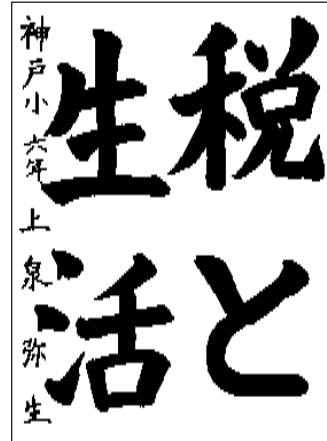 税と
生活
神戸小 六年 上泉弥生